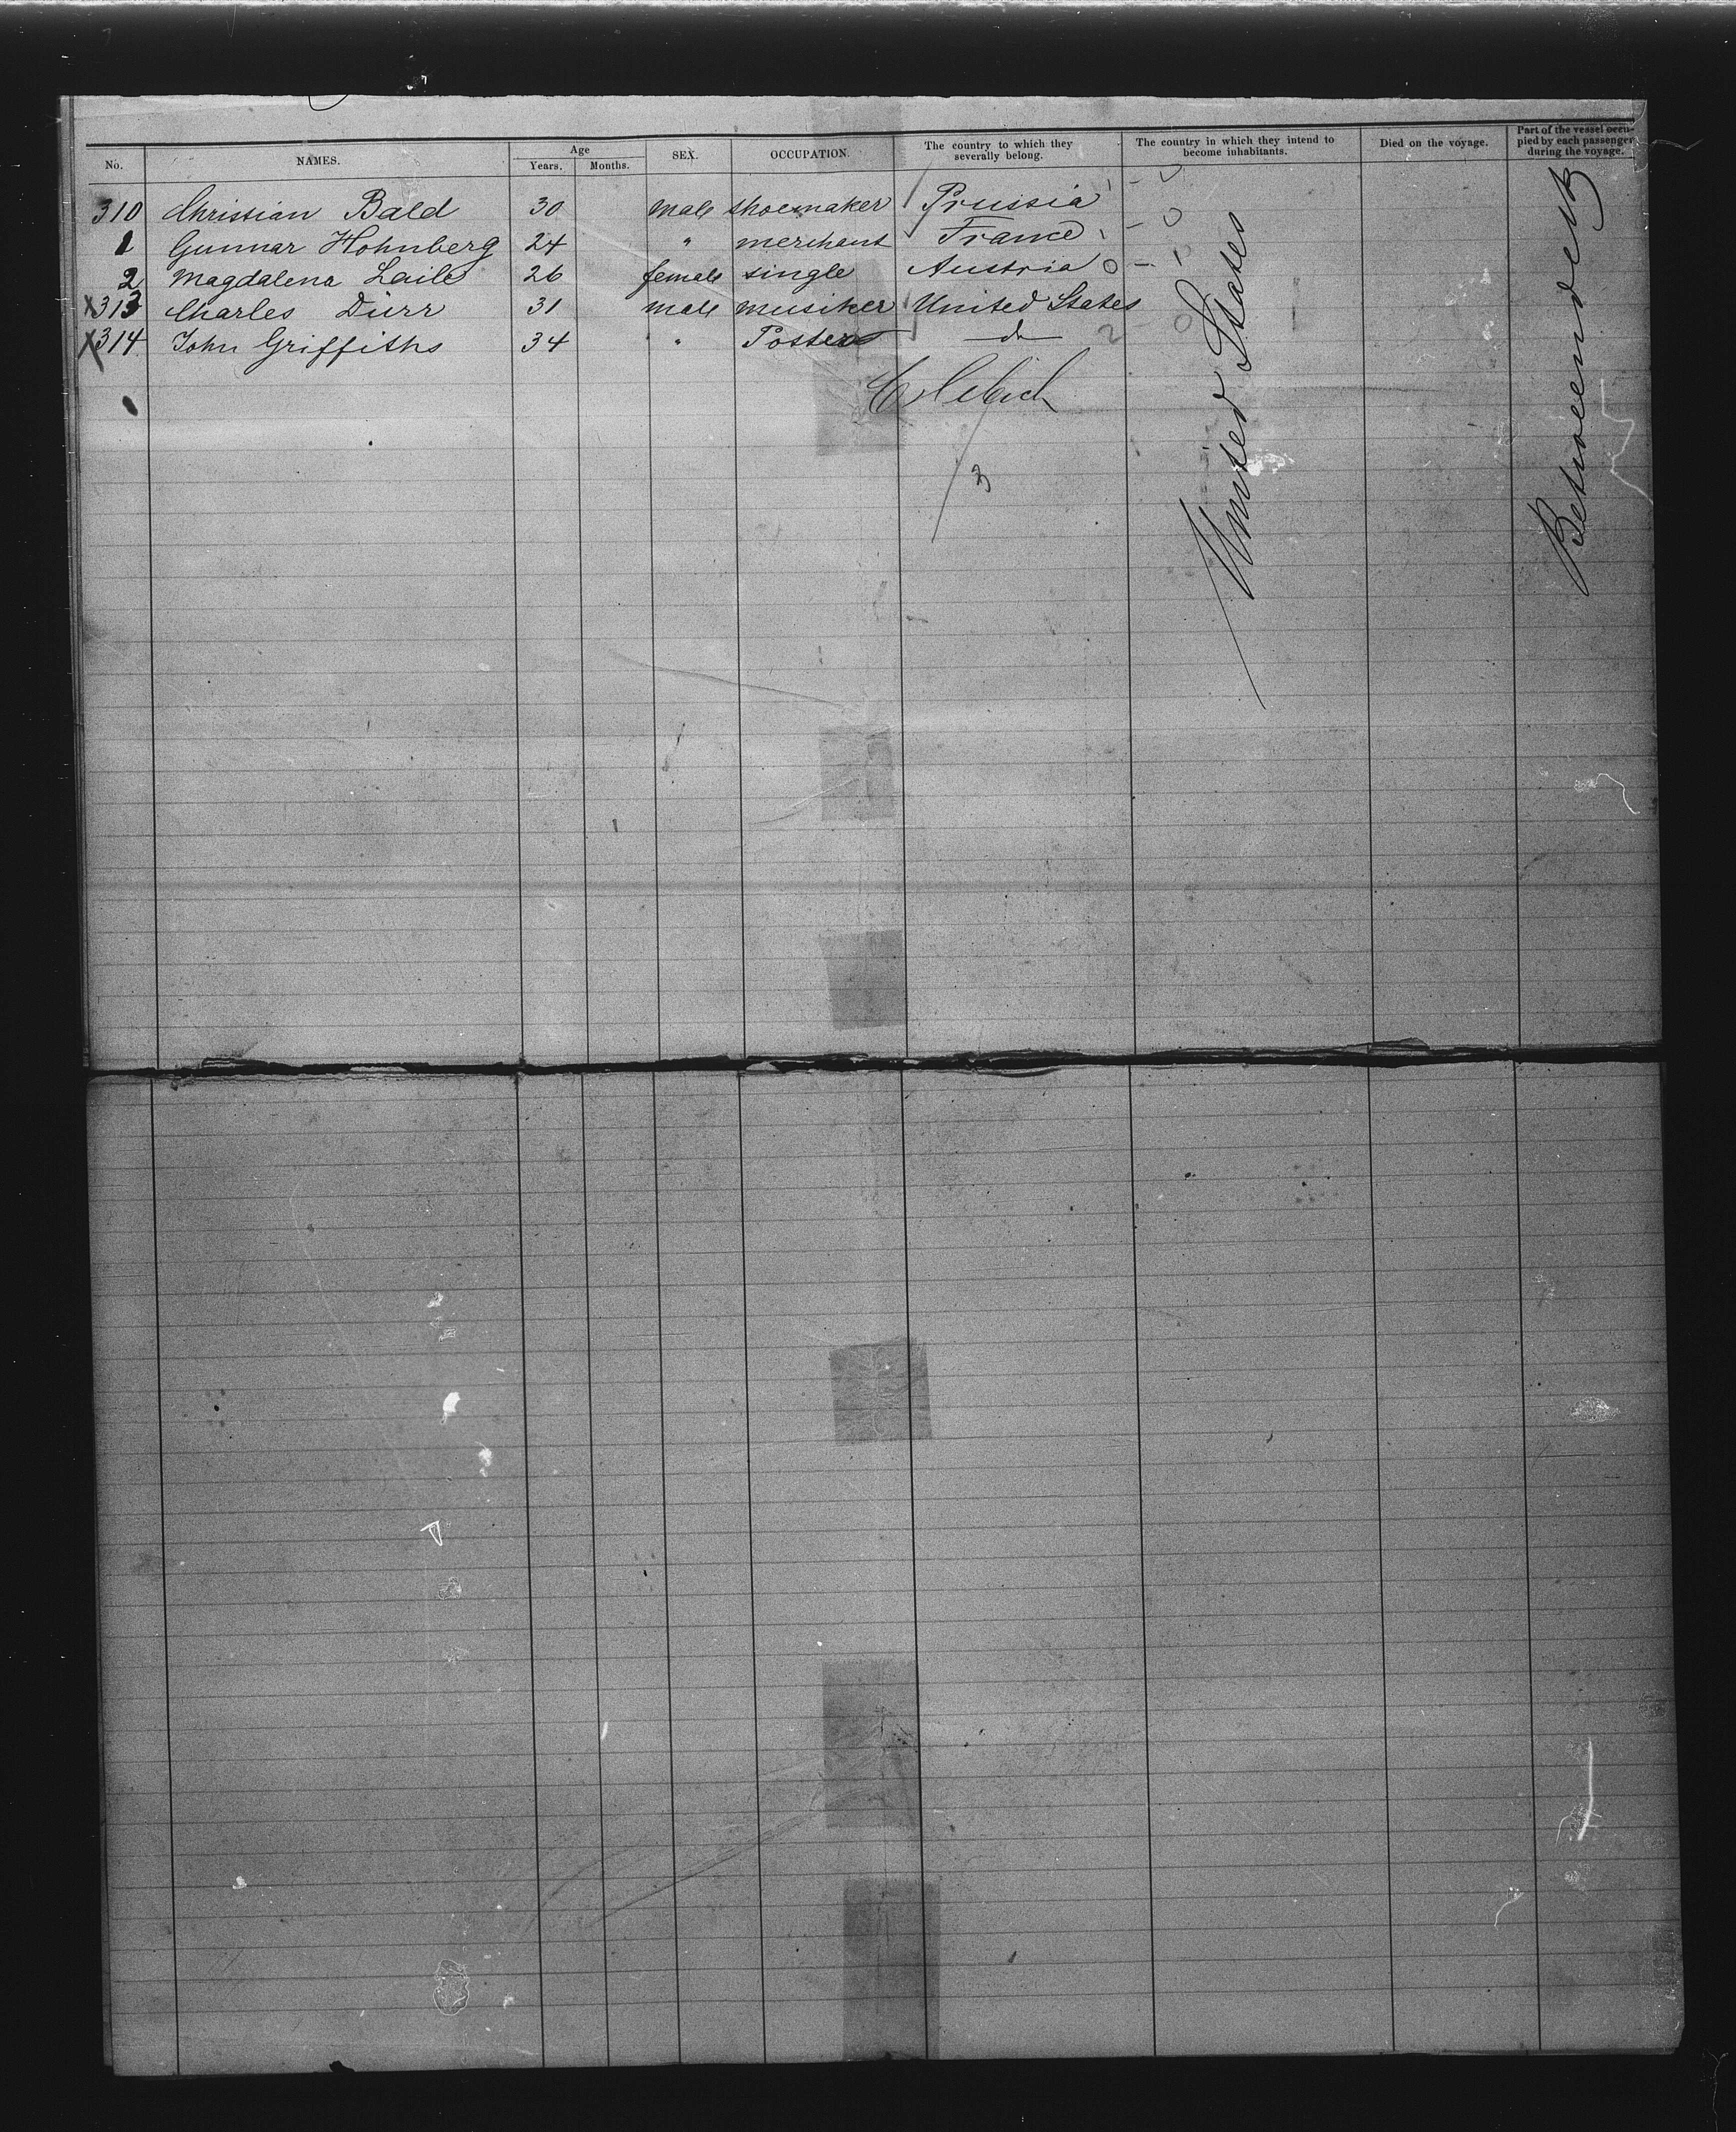 No. NAMES. Age Years. Months. SEX. OCCUPATION. The country to which they severally belong. The country in which they intend to become inhabitants. Died on the voyage. Part of the vessel occupied by each passenger during the voyage.
310 Christian Bald 30 male shoemaker Prussia
1 Gunnar Hohnberg 24 " merchant France
2 Magdalena Laile 26 female single Austria
X313 Charles Dürr 31 male musiker United States
X314 John Griffiths 34 " Porter do
3
United States
Betweendeck